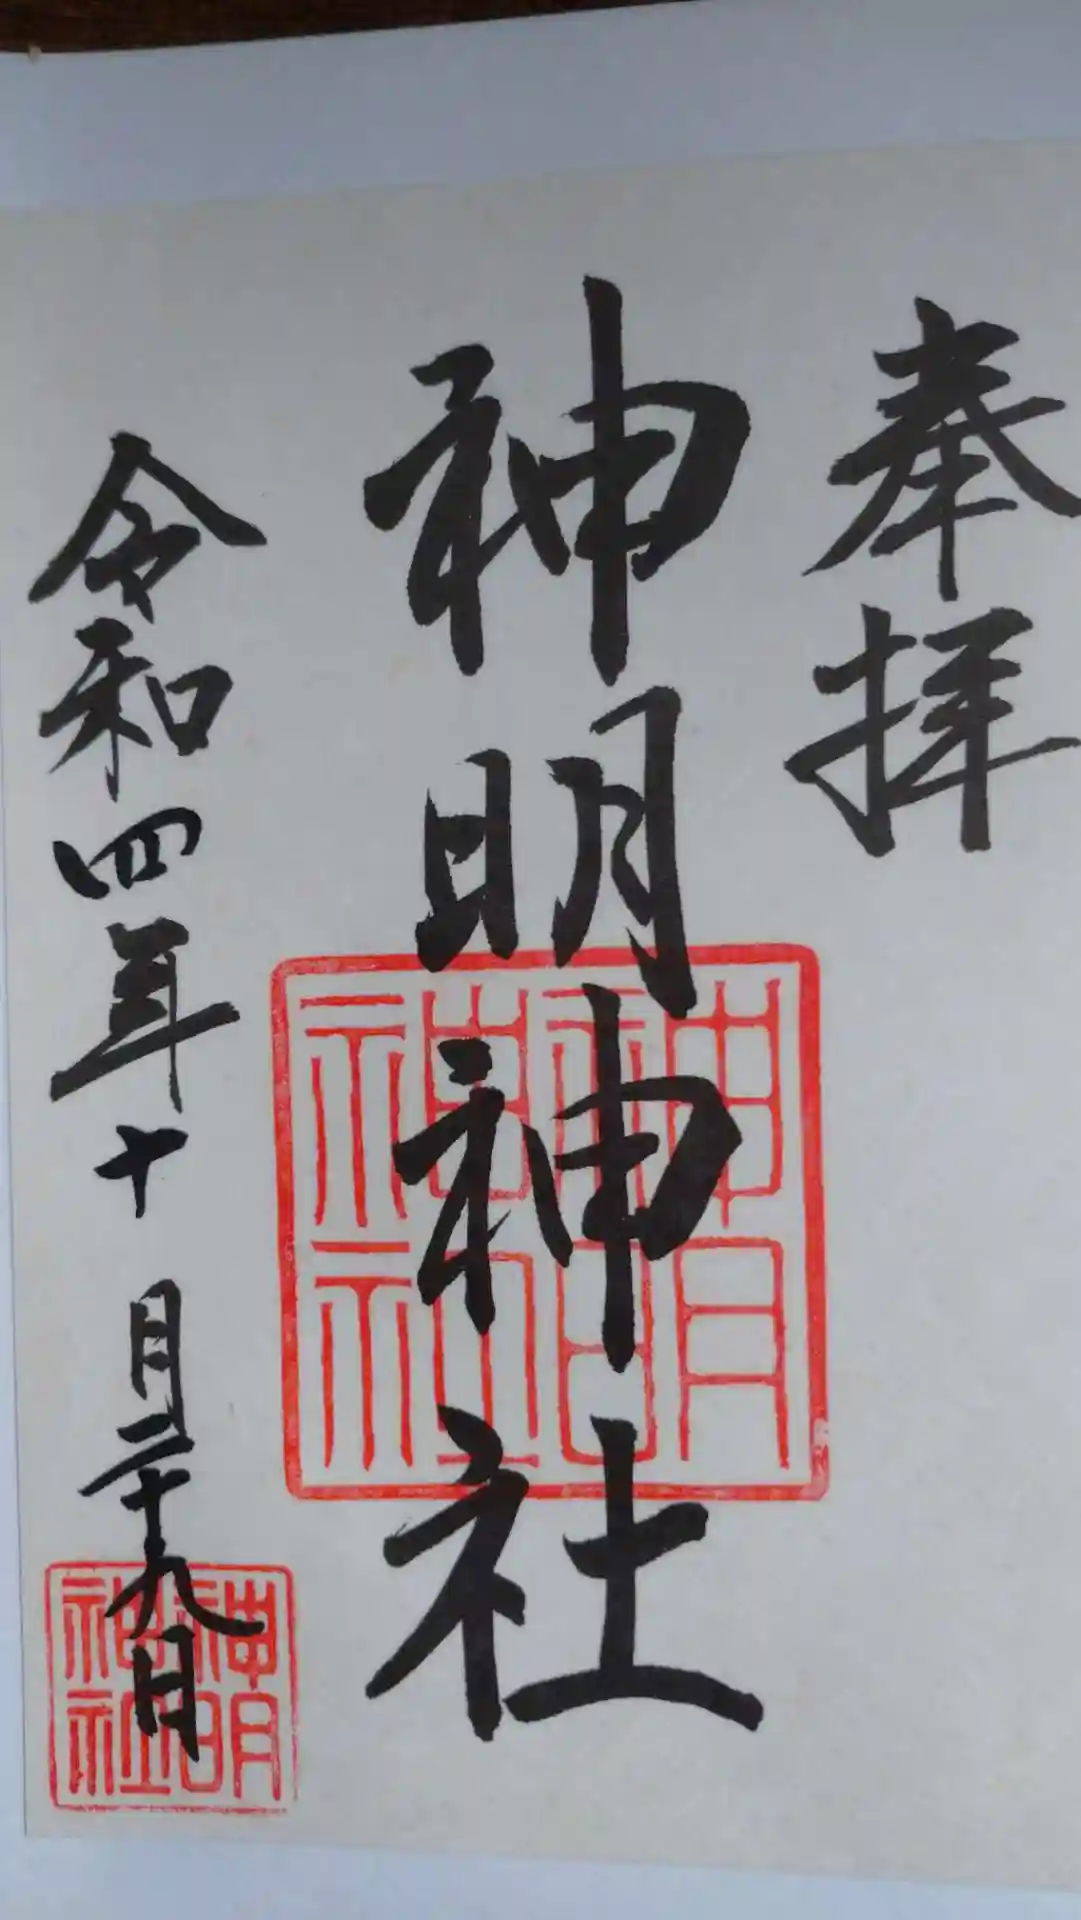 奉拝
神明神社
令和四年十月二十九日
神明神社
神明神社